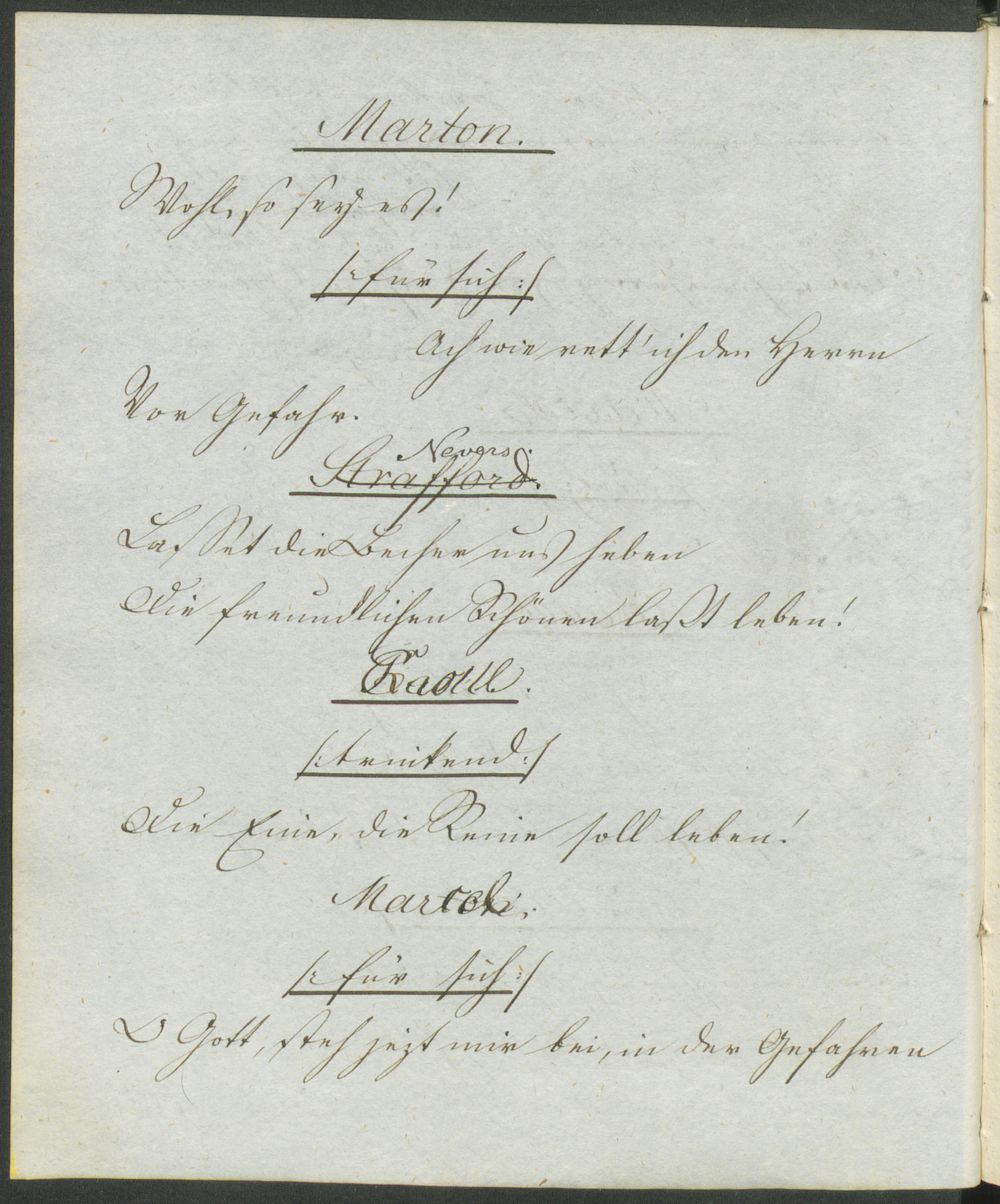 Marton.
Wohl, so sey es!
/: für sich :/
Ach wie rett' ich den Herrn
Vor Gefahr.
Nevers.
Strafford.
Lasset die Becher uns heben
Die freundlichen Schönen laßt leben!
Raoul.
/: trinkend :/
Die Eine, die Reine soll leben!
Marcel.
/: für sich :/
O Gott, steh jezt mir bei, in der Gefahren